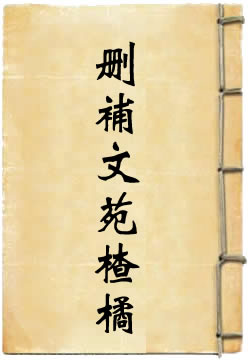 删補文苑楂橘